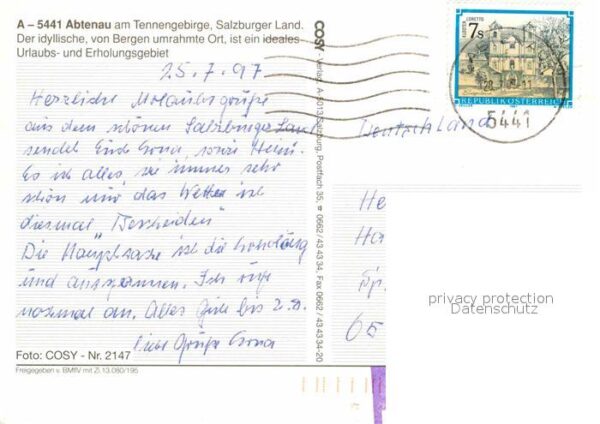 A – 5441 Abtenau am Tennengebirge, Salzburger Land.
Der idyllische, von Bergen umrahmte Ort, ist ein ideales
Urlaubs- und Erholungsgebiet
25.7.97
Herzliche Urlaubsgrüße
aus dem schönen Salzburger Land
sendet Euch Erona, sowie Heini.
Es ist alles wie immer sehr
schön nur das Wetter ist
diesmal "Bescheiden"
Die Hauptsache ist die Erholung
und ausspannen. Ich rufe
nochmal an. Alles Gute bis
Liebe Grüße Erona
Foto: COSY - Nr. 2147
Freigegeben v. BMfLV mit Zl.13.080/195
COSY - Verlag, A-5013 Salzburg, Postfach 35, ☎ 0662/43 43 34, Fax 0662/43 43 34-20
LORETTO
7s
REPUBLIK ÖSTERREICH
5441
Deutschland
He
Ha
Sp.
privacy protection
Datenschutz